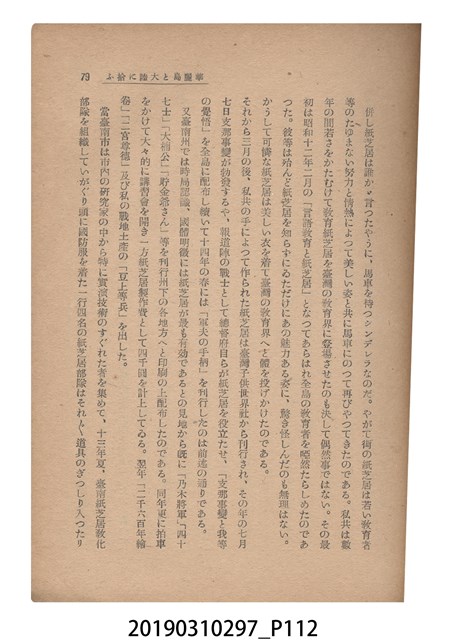 華麗島と大陸に拾ふ
79
併し紙芝居は誰かゞ言つたやうに、馬車を待つシンデレラなのだ。やがて街の紙芝居は若い教育者
等のたゆまない努力と情熱によつて美しい姿と共に馬車にのつて再びやつてきたのである。私共は數
年の間若さをかたむけて教育紙芝居を臺灣の教育界に登場させたのも決して偶然事ではない。その最
初は昭和十二年二月の「言語教育と紙芝居」となつてあらはれ全島の教育者を啞然たらしめたのであ
つた。彼等は殆んど紙芝居を知らずにゐただけにあの魅力ある姿に、驚き怪しんだのも無理はない。
かうして可憐な紙芝居は美しい衣を着て臺灣の教育界へと體を投げかけたのである。
それから三月の後、私共の手によつて作られた紙芝居は臺灣子供世界社から刊行され、その年の七月
七日支那事變が勃發するや、報道陣の戰士として總督府自らが紙芝居を役立たせ、「支那事變と我等
の覺悟」を全島に配布し續いて十四年の春には「軍夫の手柄」を刊行したのは前述の通りである。
又臺南州では時局認識、國體明徵には紙芝居が最も有効であるとの見地から旣に「乃木將軍」「四十
七士」「大楠公」「貯金爺さん」等を刊行州下の各地方へと印刷の上配布したのである。同年更に拍車
をかけて大々的に講習會を開き一方紙芝居製作費として四千圓を計上してゐる。翌年「二千六百年繪
卷」「二宮尊德」及び私の戰地土產の「豆上等兵」を出した。
當臺南市は市内の研究家の中から特に實演技術のすぐれた者を集めて、十三年夏、臺南紙芝居教化
部隊を組織していがぐり頭に國防服を着た一行四名の紙芝居部隊はそれ〴〵道具のぎつしり入つたリ
20190310297_P112